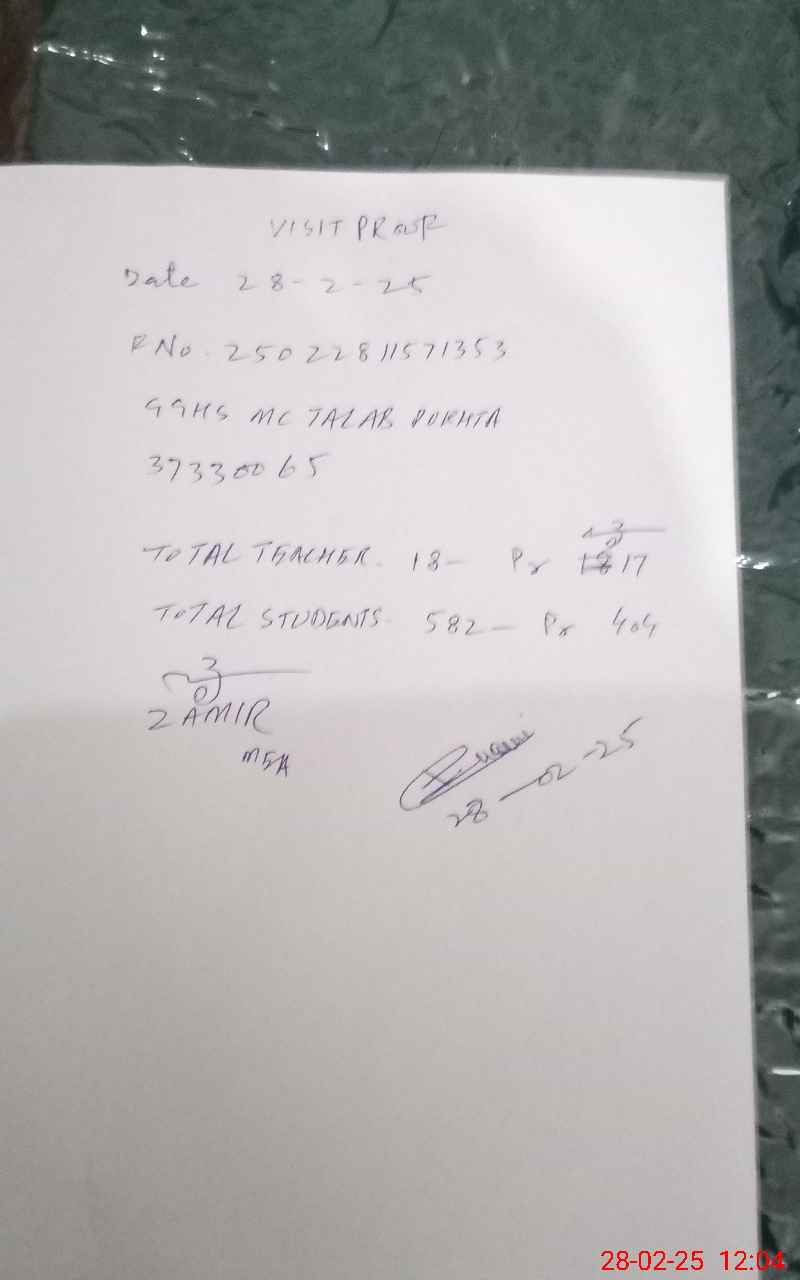 VISIT PROOF
Date 28-2-25
F No. 25022811571353
GGHS MC TALAB PUKHTA
37330065
TOTAL TEACHER. 18- Pr 17
TOTAL STUDENTS. 582- Pr 404
ZAMIR
MEA
28-02-25
28-02-25 12:04